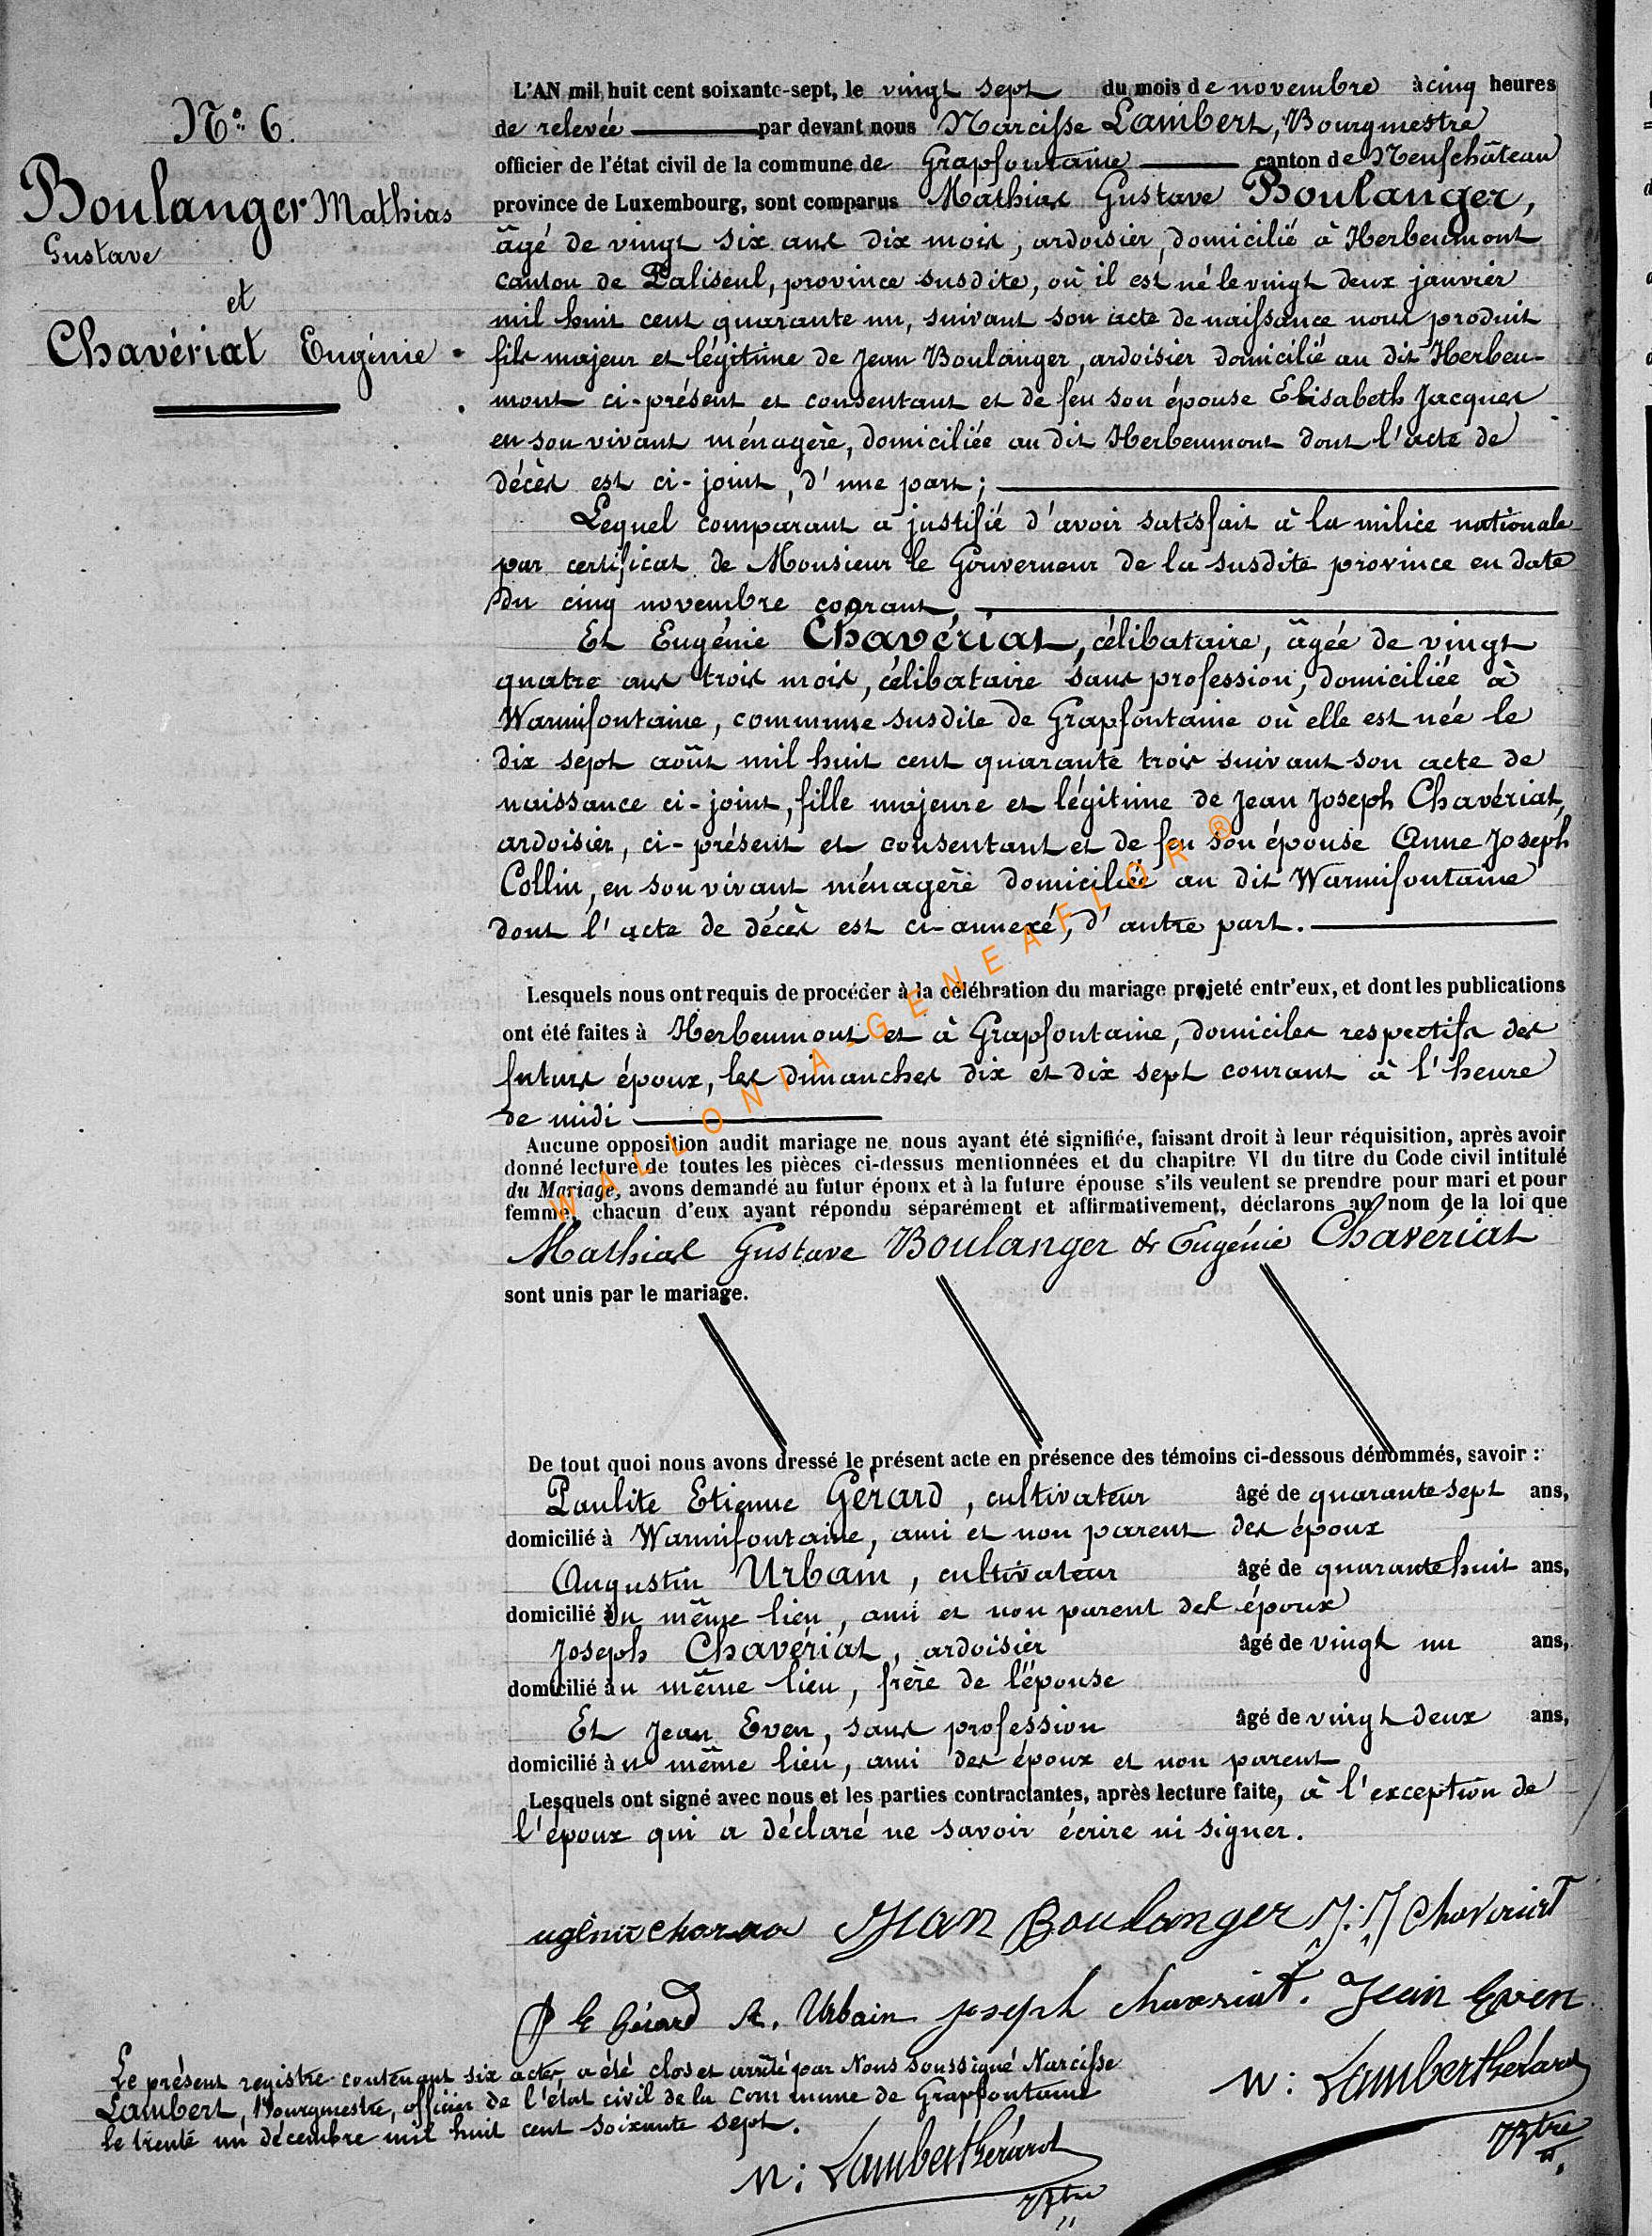 N° 6.
Boulanger Mathias
Gustave
et
Chavériat Eugénie
L'AN mil huit cent soixante-sept, le vingt sept du mois de novembre à cinq heures
de relevée par devant nous Narcisse Lambert, Bourgmestre
officier de l'état civil de la commune de Grapfontaine canton de Neufchâteau
province de Luxembourg, sont comparus Mathias Gustave Boulanger,
âgé de vingt six ans dix mois, ardoisier, domicilié à Herbeumont
canton de Paliseul, province susdite, où il est né le vingt deux janvier
mil huit cent quarante un, suivant son acte de naissance nous produit
fils majeur et légitime de Jean Boulanger, ardoisier domicilié au dit Herbeu-
mont ci-présent et consentant et de feu son épouse Elisabeth Jacques
en son vivant ménagère, domiciliée au dit Herbeumont dont l'acte de
décès est ci-joint, d'une part;
Lequel comparant a justifié d'avoir satisfait à la milice nationale
par certificat de Monsieur le Gouverneur de la susdite province en date
du cinq novembre courant,
Et Eugénie Chavériat, célibataire, âgée de vingt
quatre ans trois mois, célibataire sans profession, domiciliée à
Warmifontaine, commune susdite de Grapfontaine où elle est née le
dix sept août mil huit cent quarante trois suivant son acte de
naissance ci-joint, fille majeure et légitime de Jean Joseph Chavériat,
ardoisier, ci-présent et consentant et de feu son épouse Anne Joseph
Collin, en son vivant ménagère domiciliée au dit Warmifontaine
dont l'acte de décès est ci-annexé, d'autre part.
Lesquels nous ont requis de procéder à la célébration du mariage projeté entr'eux, et dont les publications
ont été faites à Herbeumont et à Grapfontaine, domiciles respectifs des
futurs époux, les dimanches dix et dix sept courant à l'heure
de midi
Aucune opposition audit mariage ne nous ayant été signifiée, faisant droit à leur réquisition, après avoir
donné lecture de toutes les pièces ci-dessus mentionnées et du chapitre VI du titre du Code civil intitulé
du Mariage, avons demandé au futur époux et à la future épouse s'ils veulent se prendre pour mari et pour
femme, chacun d'eux ayant répondu séparément et affirmativement, déclarons au nom de la loi que
Mathias Gustave Boulanger & Eugénie Chavériat
sont unis par le mariage.
De tout quoi nous avons dressé le présent acte en présence des témoins ci-dessous dénommés, savoir :
Paulite Etienne Gérard, cultivateur âgé de quarante sept ans,
domicilié à Warmifontaine, ami et non parent des époux
Augustin Urbain, cultivateur âgé de quarante huit ans,
domicilié au même lieu, ami et non parent des époux
Joseph Chavériat, ardoisier âgé de vingt un ans,
domicilié au même lieu, frère de l'épouse
Et Jean Even, sans profession âgé de vingt deux ans,
domicilié au même lieu, ami des époux et non parent
Lesquels ont signé avec nous et les parties contractantes, après lecture faite, à l'exception de
l'époux qui a déclaré ne savoir écrire ni signer.
Jean Boulanger J: J Chaveriat
P E Gérard A. Urbain Joseph Chaveriat. Jean Even
N: Lambert Gérard
Btre
Le présent registre contenant six actes, a été clos et arrêté par Nous soussigné Narcisse
Lambert, Bourgmestre, officier de l'état civil de la commune de Grapfontaine
le trente un décembre mil huit cent soixante sept.
N: Lambert Gérard
Btre
WALLONIA-GENEAFLOR®